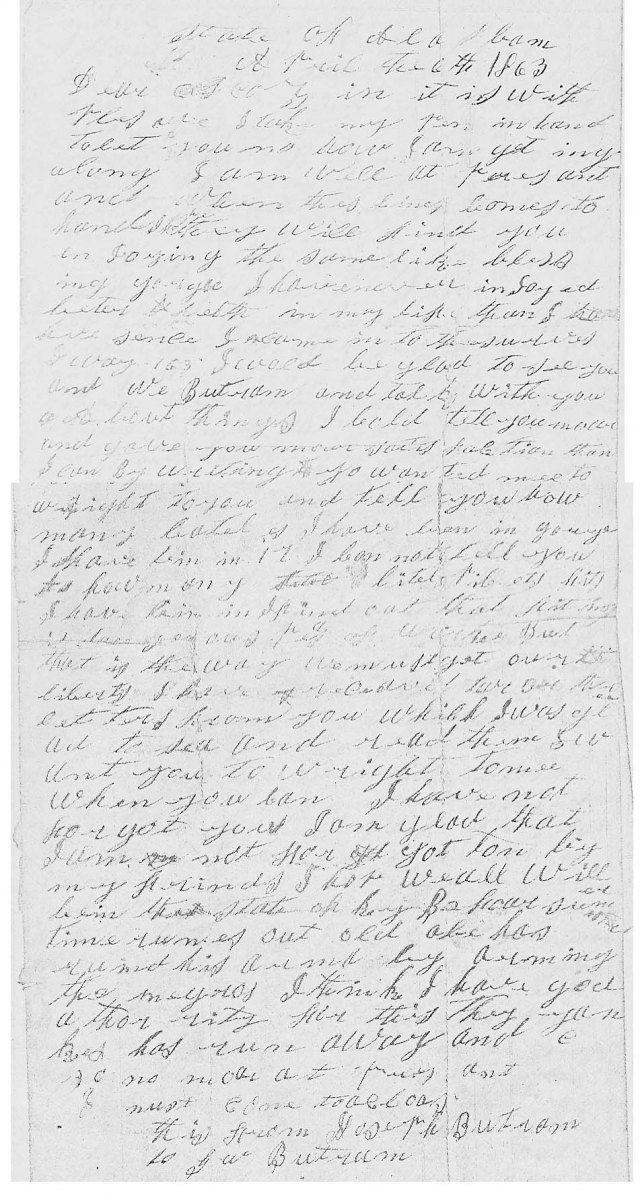 State of Ala bam
A Preil the 6th 1863
Dear in it is with
Plesore I take my Pen in hand
to let you no how I am get ing
along I am well at Pres ant
and when thes lins comes to
hand they will find you
in Joying the same like bless
ing I have never in Joyed
beter helth in my life than I have
sence I came in to the survis
I would be glad to see you
and we Butram and talk with you
a bout things I cold tell you more
and gave you more satis faction than
I can by writing yo wanted mee to
wright to you and tell you how
many batel s I have ben in
I have bin in 17 I can not tell you
how mony litel fits
I have bin in I find out that
But
that is the way we must get our
liberty I have received two or three
let ters from you which I was gl
ad to sea and read them I w
ant you to wright to mee
when you can I have not
for got you I am glad that
I am not for got ton by
my frinds I hop we all will
be in the state of ky be four
time runes out old abe has
ruind his armd by arming
the negros I think I have good
a thor rity for this they yan
kes has run away and
so no mor at pres ant
I must come to a close
this from Joseph Butram
to J w Butram